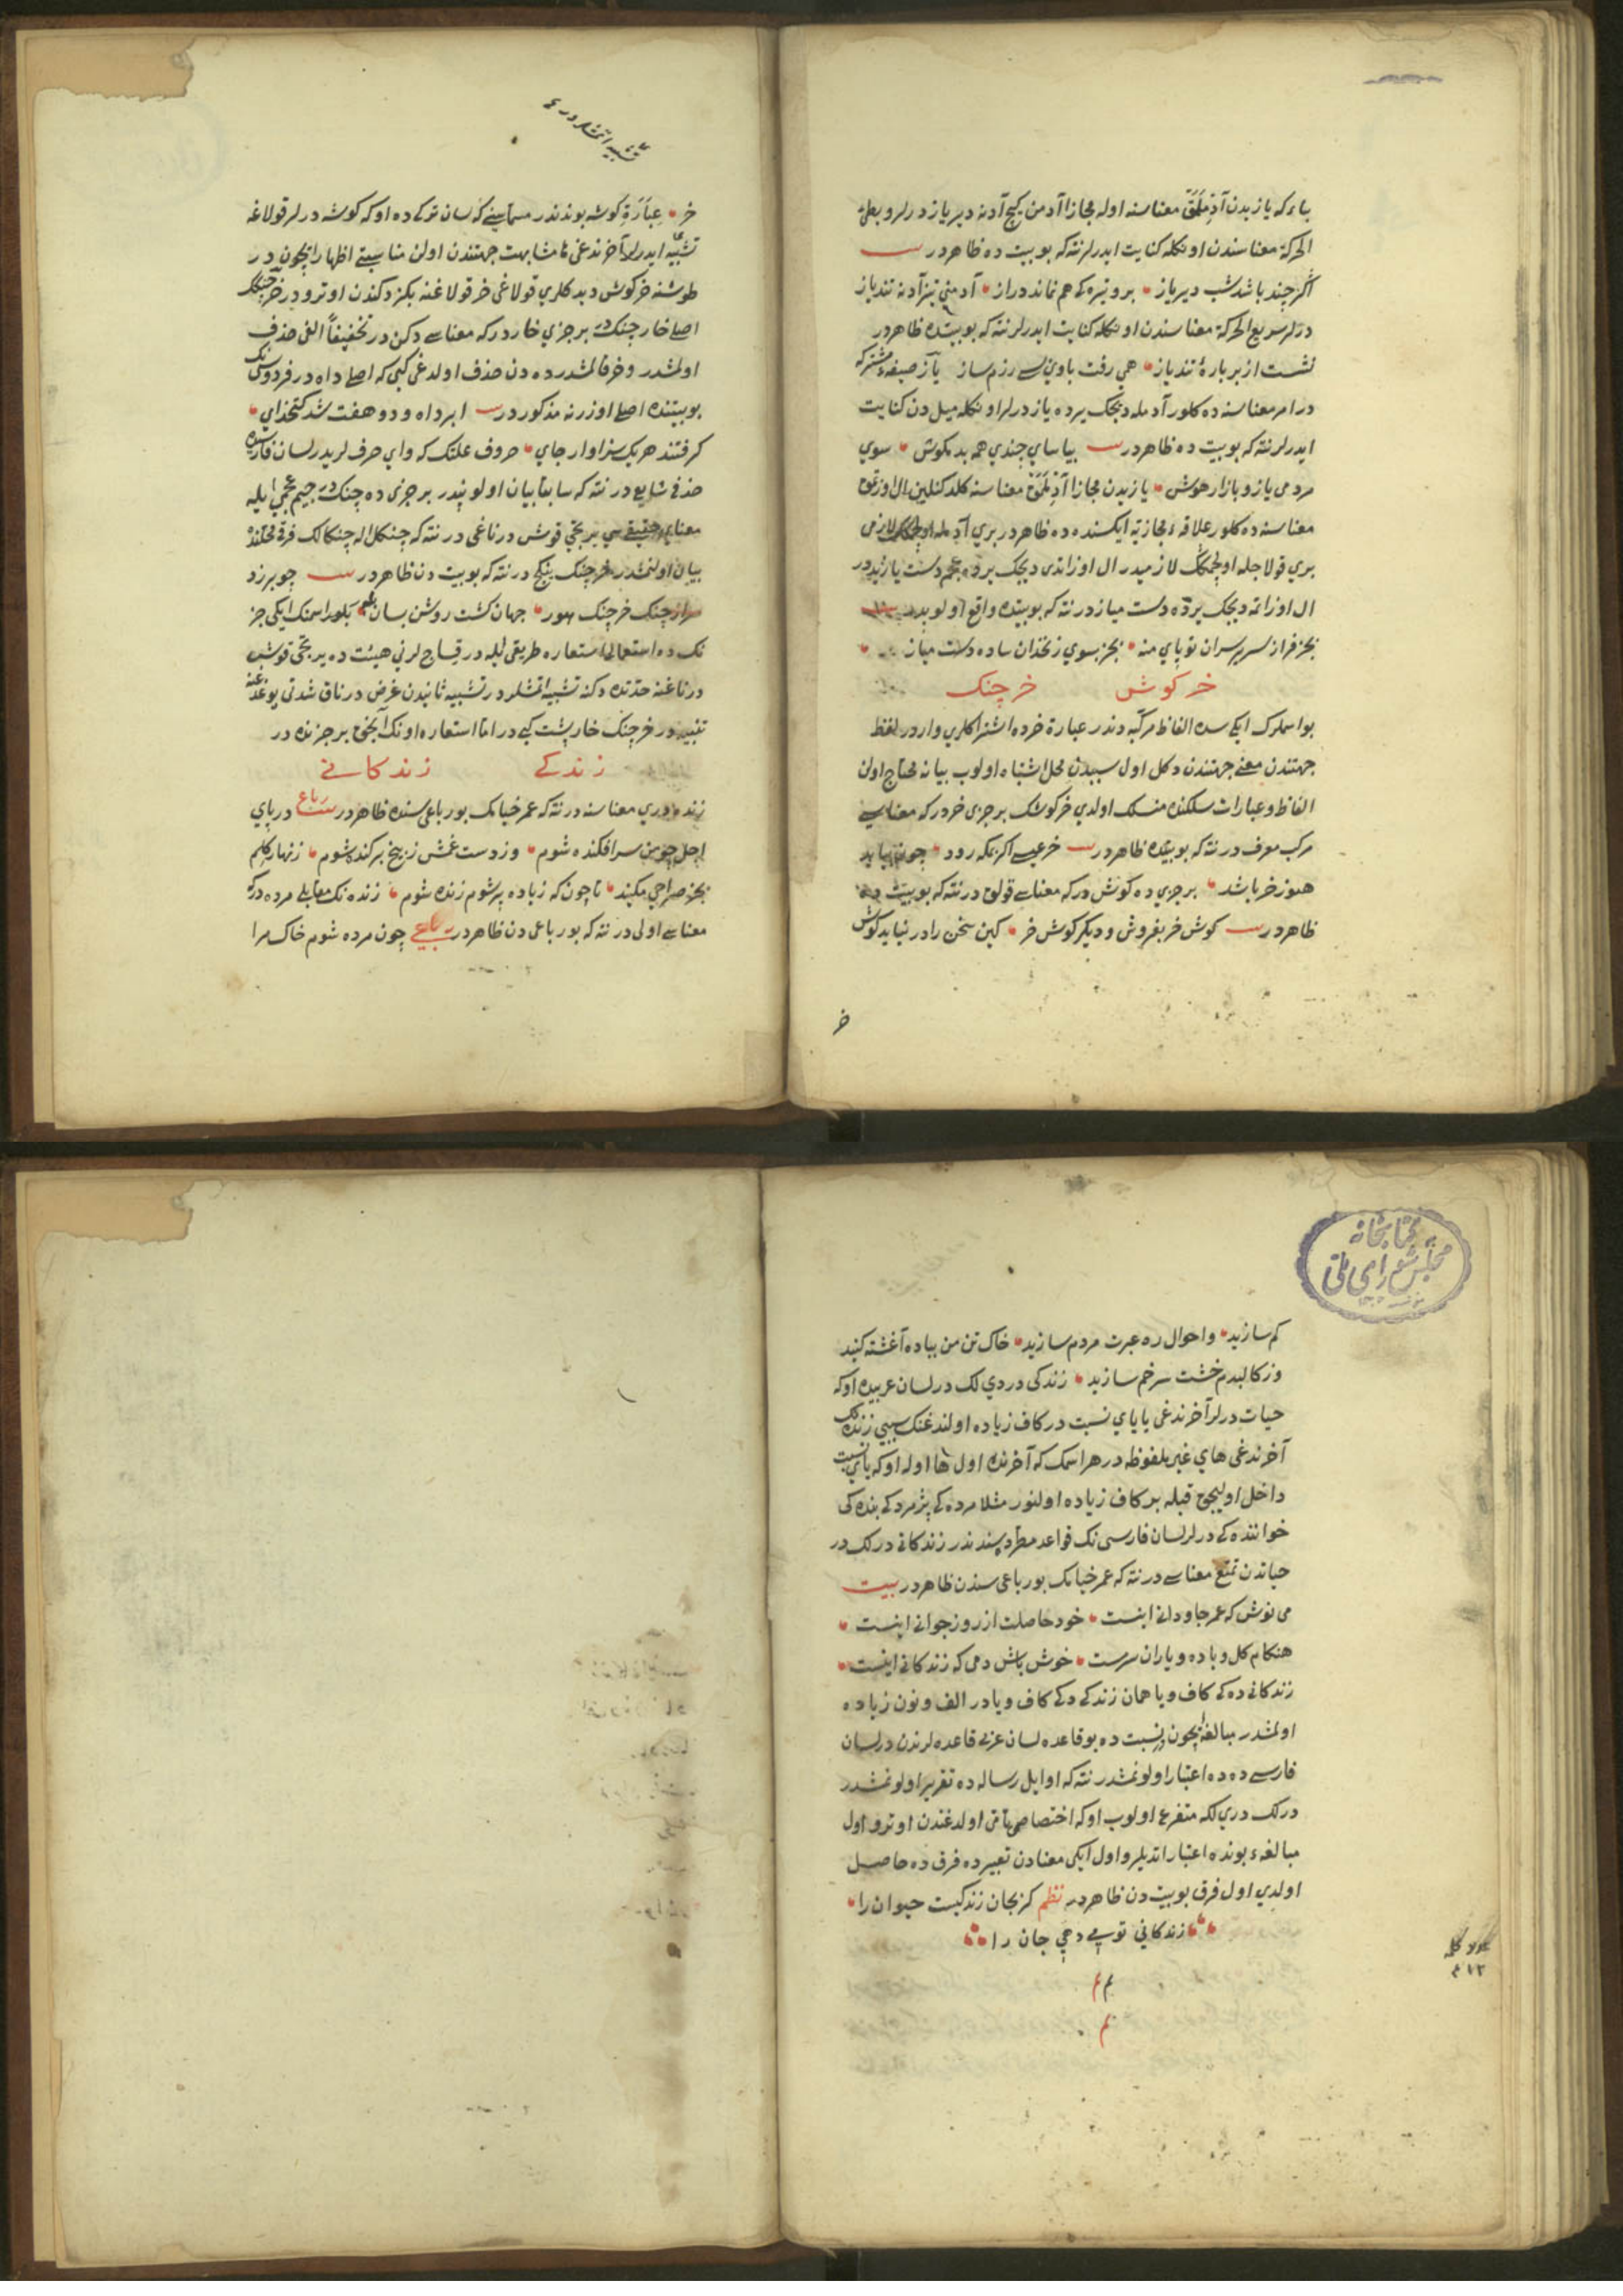 باء که یازیدن آدِملَمَق معناسنه اوله مجازا آدمن کیچ آدنه دیریاز درلر و بعلئ
الحرکة معناسندن اونکله کنایت ایدرلر نته که بو بیت ده ظاهردر
اکر چند باشد شب دیریاز برو تیره کی هم نماند دراز آدمنی تیز آدنه تندیاز
درلر سریع الحرکة معناسندن اونکله کنایت ایدرلر نته که بو بیتده ظاهردر
نشست از بر بارهٔ تندیاز همی رفت با وی رزم ساز یاز صیغهٔ مشترکه
در امر معناسنه ده کلور آدمله دیجک یرده یاز درلر اونکله میل دن کنایت
ایدرلر نته که بو بیت ده ظاهردر بیاسای چندی همه بد مکوش سوی
مردمی یاز و بازار هوش یازیدن مجازا معناسنه کلدکنلین ال اوزتمق
معناسنه ده کلور علاقهء مجازیه ایکسنده ده ظاهردر بری لازمی
بری قولاجله اولچمکک لازمیدر ال اوزاتدی دیجک یرده عجم دست یازید در
ال اوزاتمه دیجک یرده دست میاز در نته که بو بیتده واقع اولوبدر
بجز فراز سریر سران تو پای منه بجز بسوی زنخدان ساده دست میاز
خر کوش خر چنک
بو اسملرک ایکیسده الفاظ مرکبه دندر عبارة خرده اشتراکلری واردر لفظ
جهتندن معنی جهتندن دکل اول سببدن محل اشتباه اولوب بیانه محتاج اولن
الفاظ و عبارات سلکنده منسلک اولدی خرکوشک بر جزی خردر که معناسی
مرکب معروف در نته که بو بیتده ظاهردر خر عیسی اکر بمکه رود چون بیاید
هنوز خر باشد بر جزی ده کوش در که معناسی قولاق در نته که بو بیت ده
ظاهردر کوش خر بفروش و دیکر کوش خر کین سخن را در نیابد کوش
خر
تشبیه اتمشلر در
خر عبارَة کوشه بوندندر مسماسینه که لسان ترکی ده اوکه کوشه درلر قولاغه
تشبیه ایدرلر آخرندغی ها مشابهت جهتندن اولن مناسبتی اظهار ایچون در
طوشنه خرکوش دیدکلری قولاغی خر قولاغنه بکزدکندن اوترودر خرچنک
اصلی خارچنک در بر جزی خاردر که معناسی دکن در تخفیفاً الفی حذف
اولمشدر و خرفا لمشدر ده دن حذف اولدغی کبی که اصلی داه در فردوسی نک
بو بیتنده اصلی اوزرنه مذکوردر ابر داه و دو هفت شد کتخدای
کرفتند هریک سزاوار جای حروف علتک که وای حرفلریدر لسان فارسیده
حذفی شایع در نته که سابقا بیان اولونپدر بر جزی ده چنک در جیم عجمی ایله
معنای حقیقیسی یرتجی قوش درناغی در نته که چنکل اله چنکالک فرقی محلنده
بیان اولنمشدر خرچنک ینکج در نته که بو بیت دن ظاهردر چو برزد
سر از چنک خرچنک هور جهان کشت روشن بسان بلور اسمک ایکی جز
نک ده استعمالی استعاره طریقی ایله در قیساجلرنی هیئت ده یرتجی قوش
درناغنه حدتده دکنه تشبیه اتمشلردر تشبیه ثانیدن غرض درناق شدتی یوغدغنه
تنبیه در خرچنک خارپشت کبی در اما استعاره اونک انجق بر جزنده در
زندکی زندکانی
زنده دری معناسنه در نته که عمر خیامک بو رباعی سنده ظاهردر رباعی در پای
اجل چو من سرافکنده شوم وز دست غمش ز بیخ برکنده شوم زنهار کلم
بجز صراحی مکنید تا چون که ز باده پر شوم زنده شوم زنده نک مقابلی مرده در که
معناسی اولی در نته که بو رباعی دن ظاهردر رباعی چون مرده شوم خاک مرا
کتابخانه
مجلس شورای ملی
کم سازید و احوال ره عبرت مردم سازید خاک تن من بباده آغشته کنید
وز کالبدم خشت سر خم سازید زندکی دردی لک در لسان عربیده اوکه
حیات درلر آخرندغی یا یای نسبت در کاف زیاده اولندغنک سببی زنده نک
آخرندغی های غیر ملفوظه در هر اسمک که آخرنده اول ها اوله اوکه یای نسبت
داخل اولیجق قبله بر کاف زیاده اولنور مثلا مرده کی پژمردکی بنده کی
خواننده کی درلر لسان فارسی نک قواعد مطردسندندر زندکانی درلک در
حیاتدن تمتع معناسی در نته که عمر خیامک بو رباعی سندن ظاهردر بیت
می نوش که عمر جاودانی اینست خود حاصلت از روز جوانی اینست
هنکام کل و باده و یاران سرمست خوش باش دمی که زندکانی اینست
زندکانی ده کی کاف و یا همان زندکی دکی کاف و یادر الف و نون زیاده
اولمشدر مبالغه ایچون در نسبت ده بو قاعده لسان عربی قاعده لرندن در لسان
فارسی ده ده اعتبار اولونمشدر نته که اوایل رساله ده تقریر اولونمشدر
درلک دری لکه متفرع اولوب اوکه اختصاصی تامی اولدغندن اوترو اول
مبالغهء بونده اعتبار اتدیلر و اول ایکی معنادن تعبیرده فرق ده حاصل
اولدی اول فرق بو بیت دن ظاهردر نظم کر بجان زندکیست حیوان را
زندکانی تویی دهی جان را
م م
م